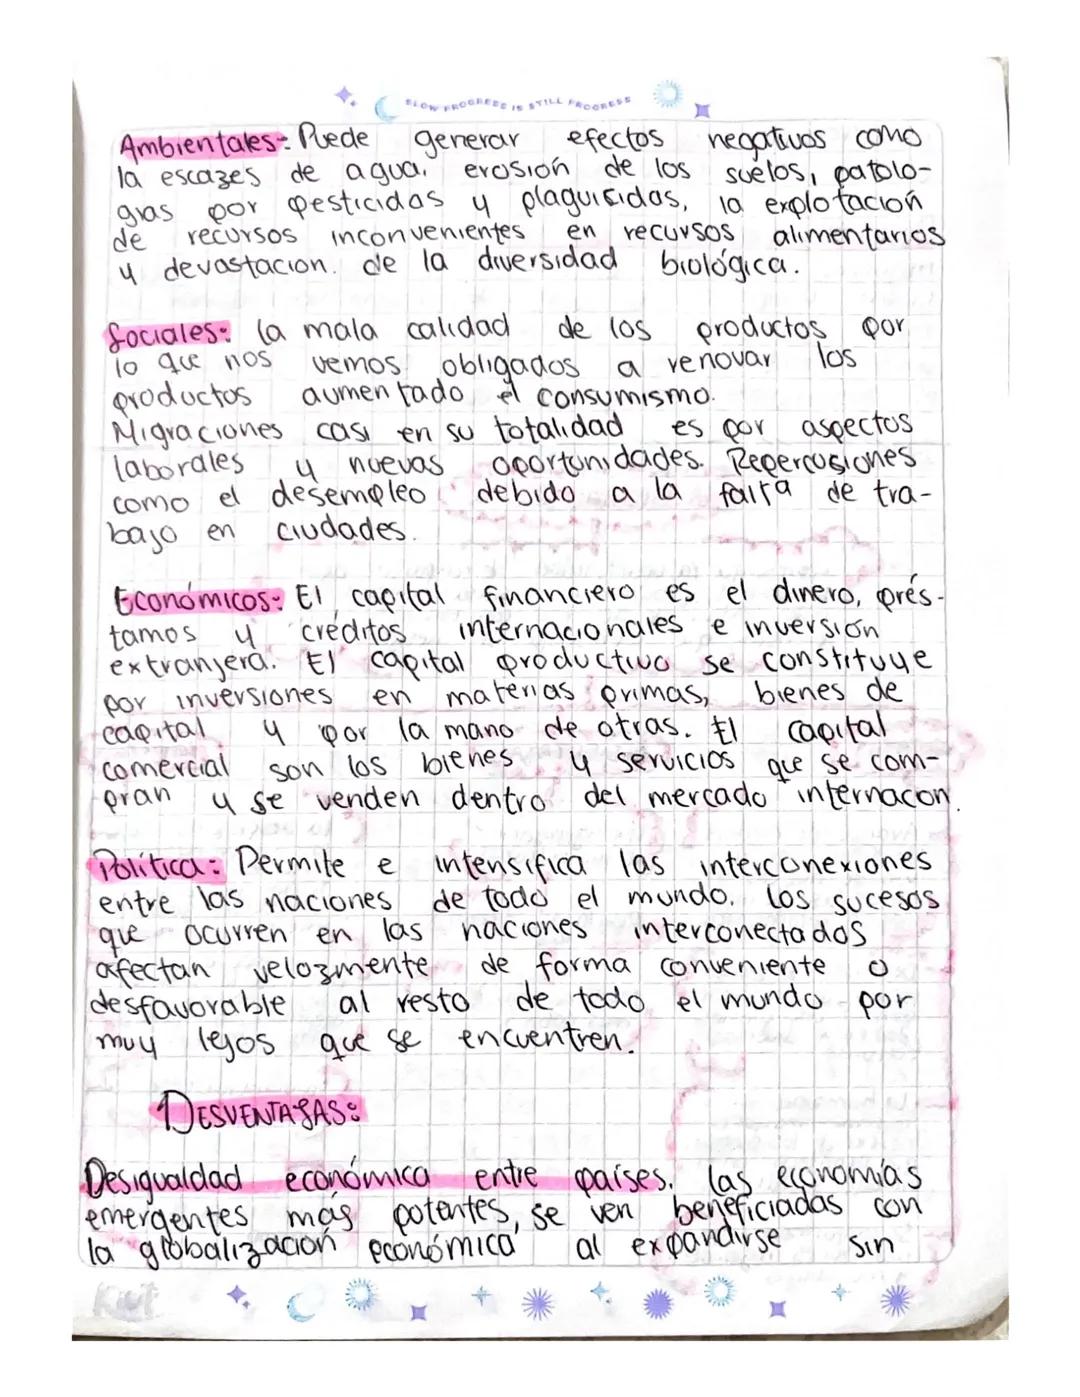 SLOW PROGRESS IS STILL PROGRESS
Ambientales: Puede generar efectos negativos como
la escazes de agua, erosión de los suelos, patolo-
gias por pesticidas y plaguicidas, la explotación
de recursos inconvenientes en recursos alimentarios
y devastacion de la diversidad biológica.
Sociales: la mala calidad de los productos por
lo que nos vemos obligados a renovar los
productos aumentado el consumismo.
Migraciones casi en su totalidad es por aspectos
laborales y nuevas oportunidades. Repercusiones
como el desempleo debido a la falta de tra-
bajo en ciudades.
Económicos: El capital financiero es el dinero, prés-
tamos y créditos internacionales e inversión
extranjera. El capital productivo se constituye
por inversiones en materias primas, bienes de
capital y por la mano de otras. El capital
comercial son los bienes y servicios que se com-
pran y se venden dentro del mercado internacon.
Política: Permite e intensifica las interconexiones
entre las naciones de todo el mundo. Los sucesos
que ocurren en las naciones interconectados
afectan velozmente de forma conveniente o
desfavorable al resto de todo el mundo por
muy lejos que se encuentren.
DESVENTAJAS:
Desigualdad económica entre países. las economías
emergentes más potentes, se ven beneficiadas con
la globalización económica al expandirse sin
Kiut